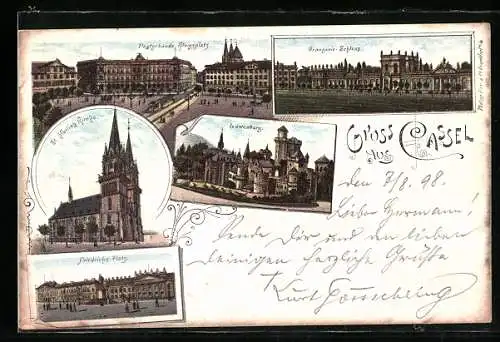 Postgebäude, Königsplatz
Orangerie-Schloss
St. Martins Kirche
Löwenburg
Friedrichs-Platz
Gruss
aus
Cassel
den 7/8. 98.
Lieber Hermann!
Sende Dir und den lieben
Deinigen herzliche Grüße
Kurt